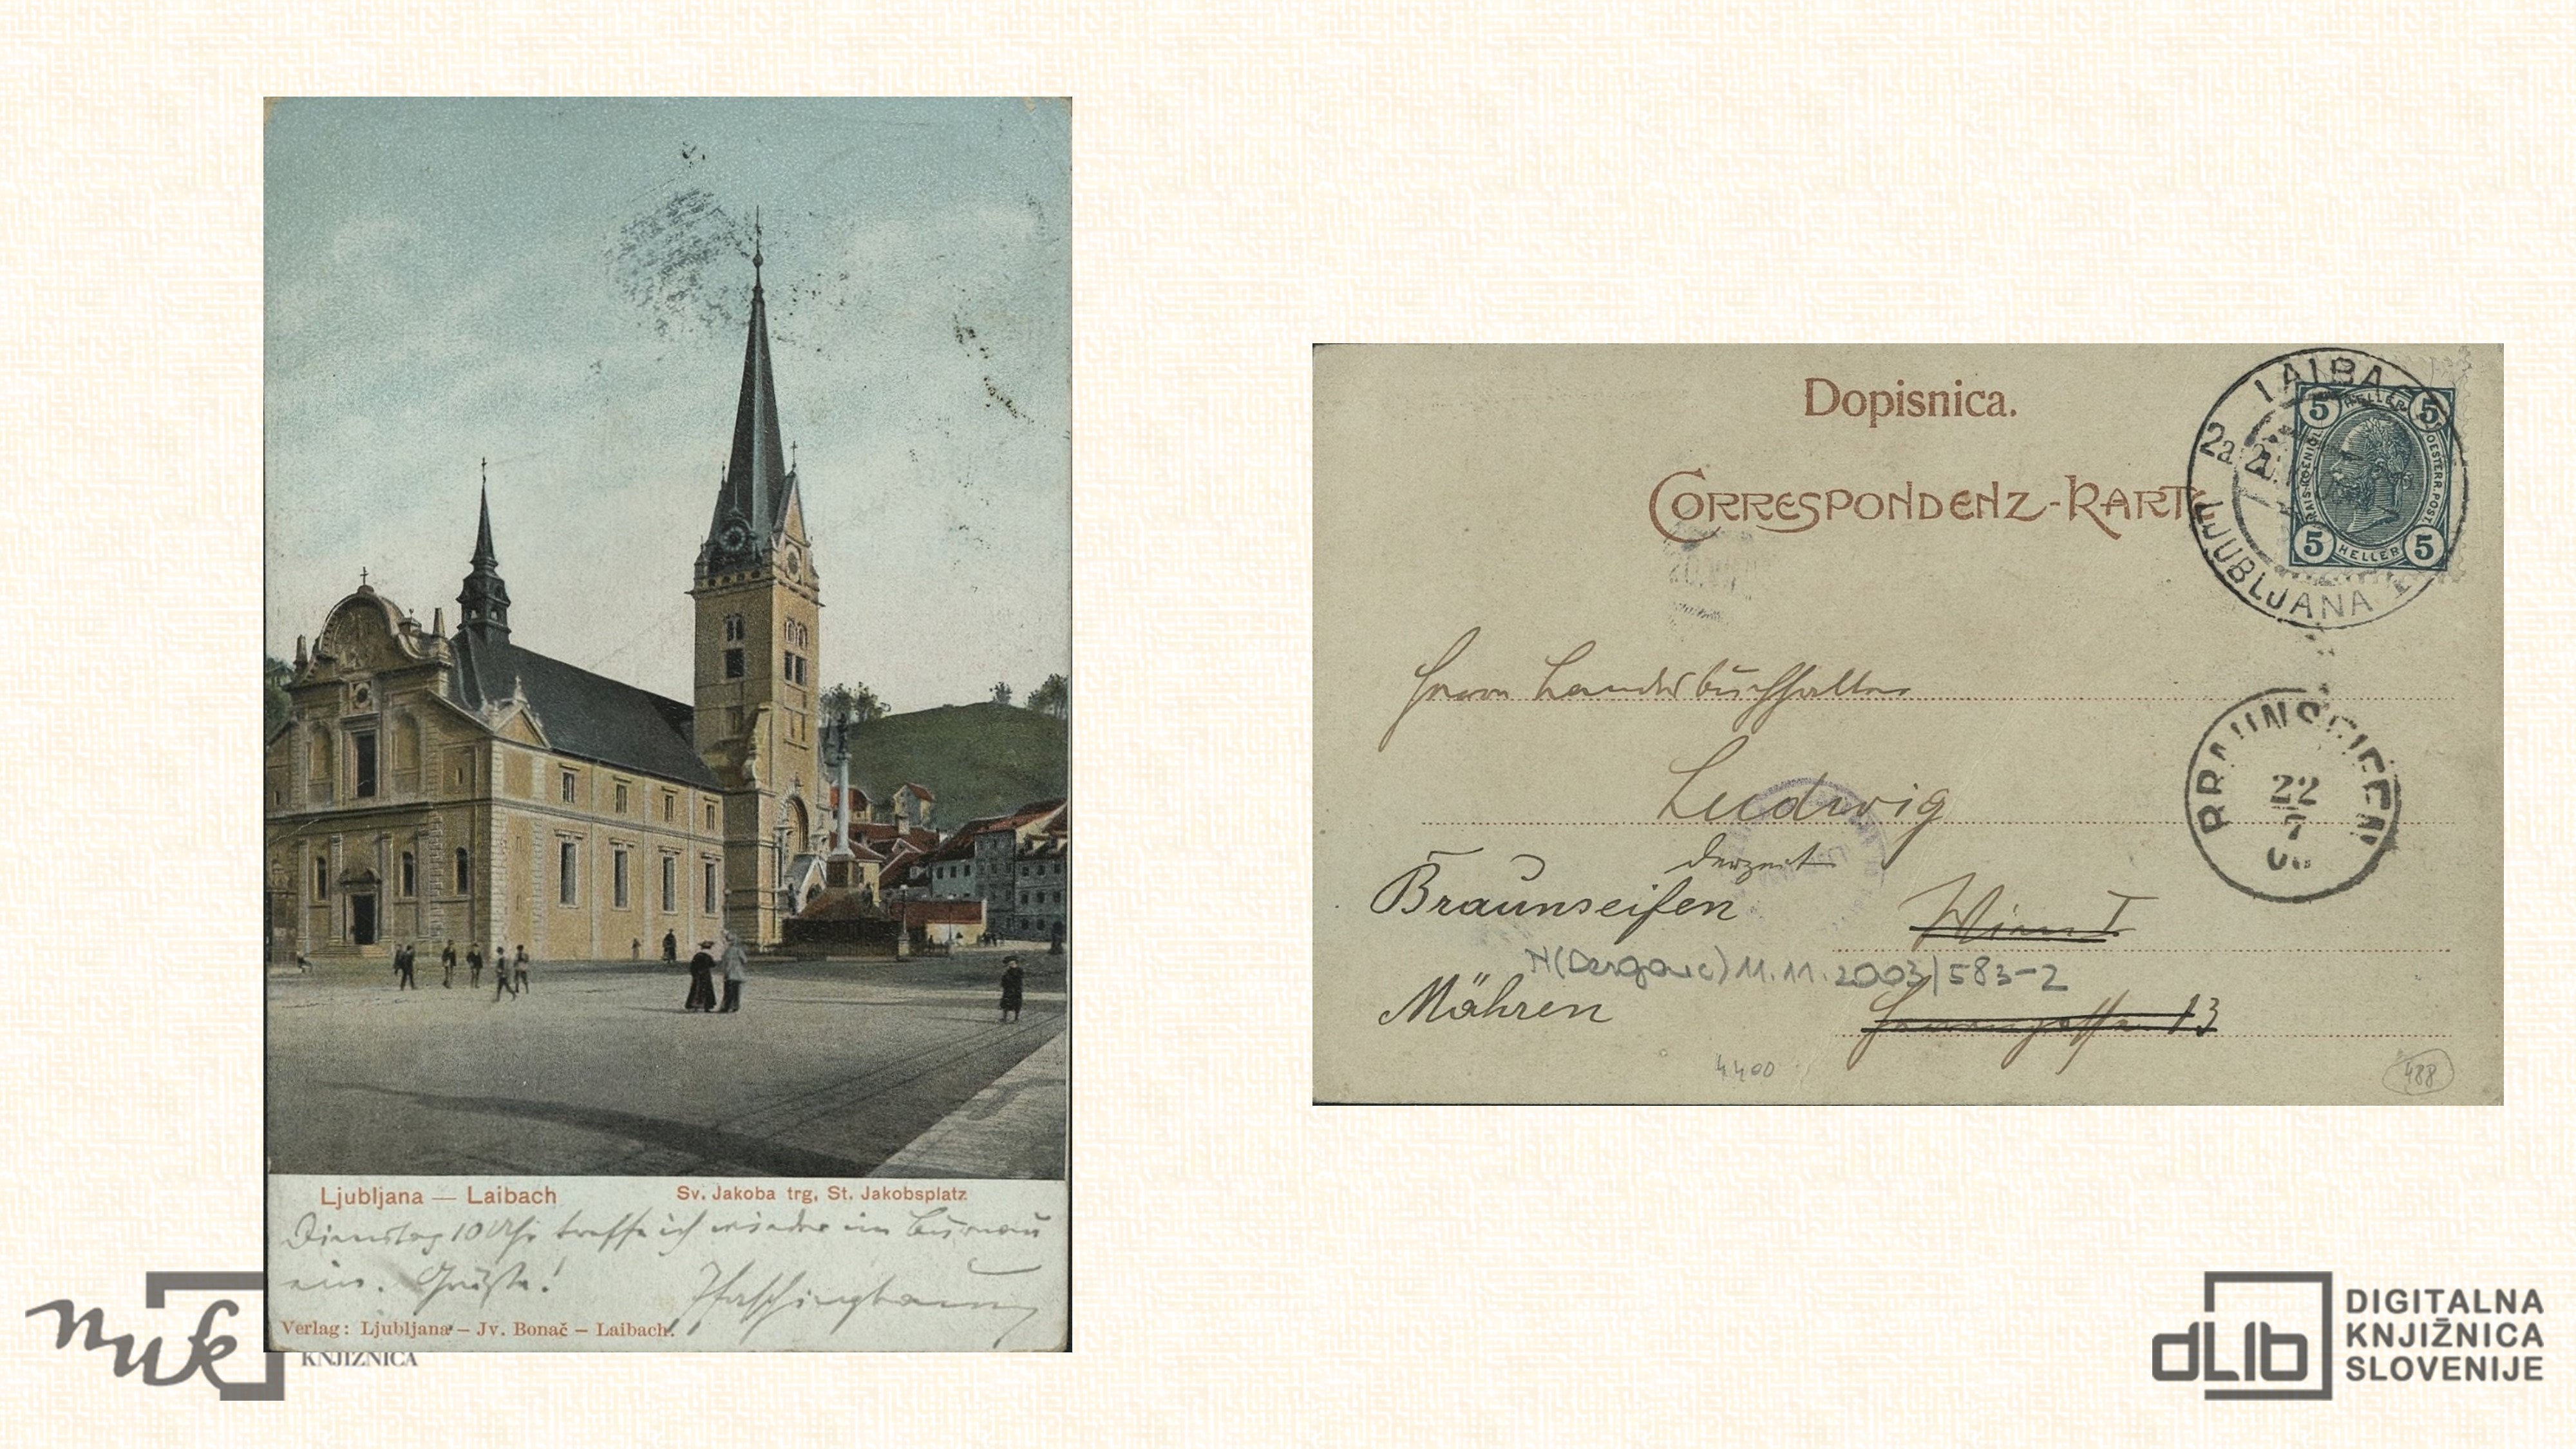 Ljubljana — Laibach
Sv. Jakoba trg, St. Jakobsplatz
Dienstag 10 Uhr treffe ich wieder im Bureau
ein. Grüße!
Verlag: Ljubljana – Jv. Bonač – Laibach.
Dopisnica.
CORRESPONDENZ-KARTE
LAIBACH
2a
LJUBLJANA
5 HELLER 5
KAIS. KOENIGL. OESTERR. POST.
5 HELLER 5
Herrn Landesbuchhalter
Ludwig
derzeit
Braunseifen
Wien I
Mähren
13
N(Derganc) 11.11.2003/583-2
4400
488
BRAUNSEIFEN
22
7
nuk
KNJIŽNICA
dLib
DIGITALNA
KNJIŽNICA
SLOVENIJE